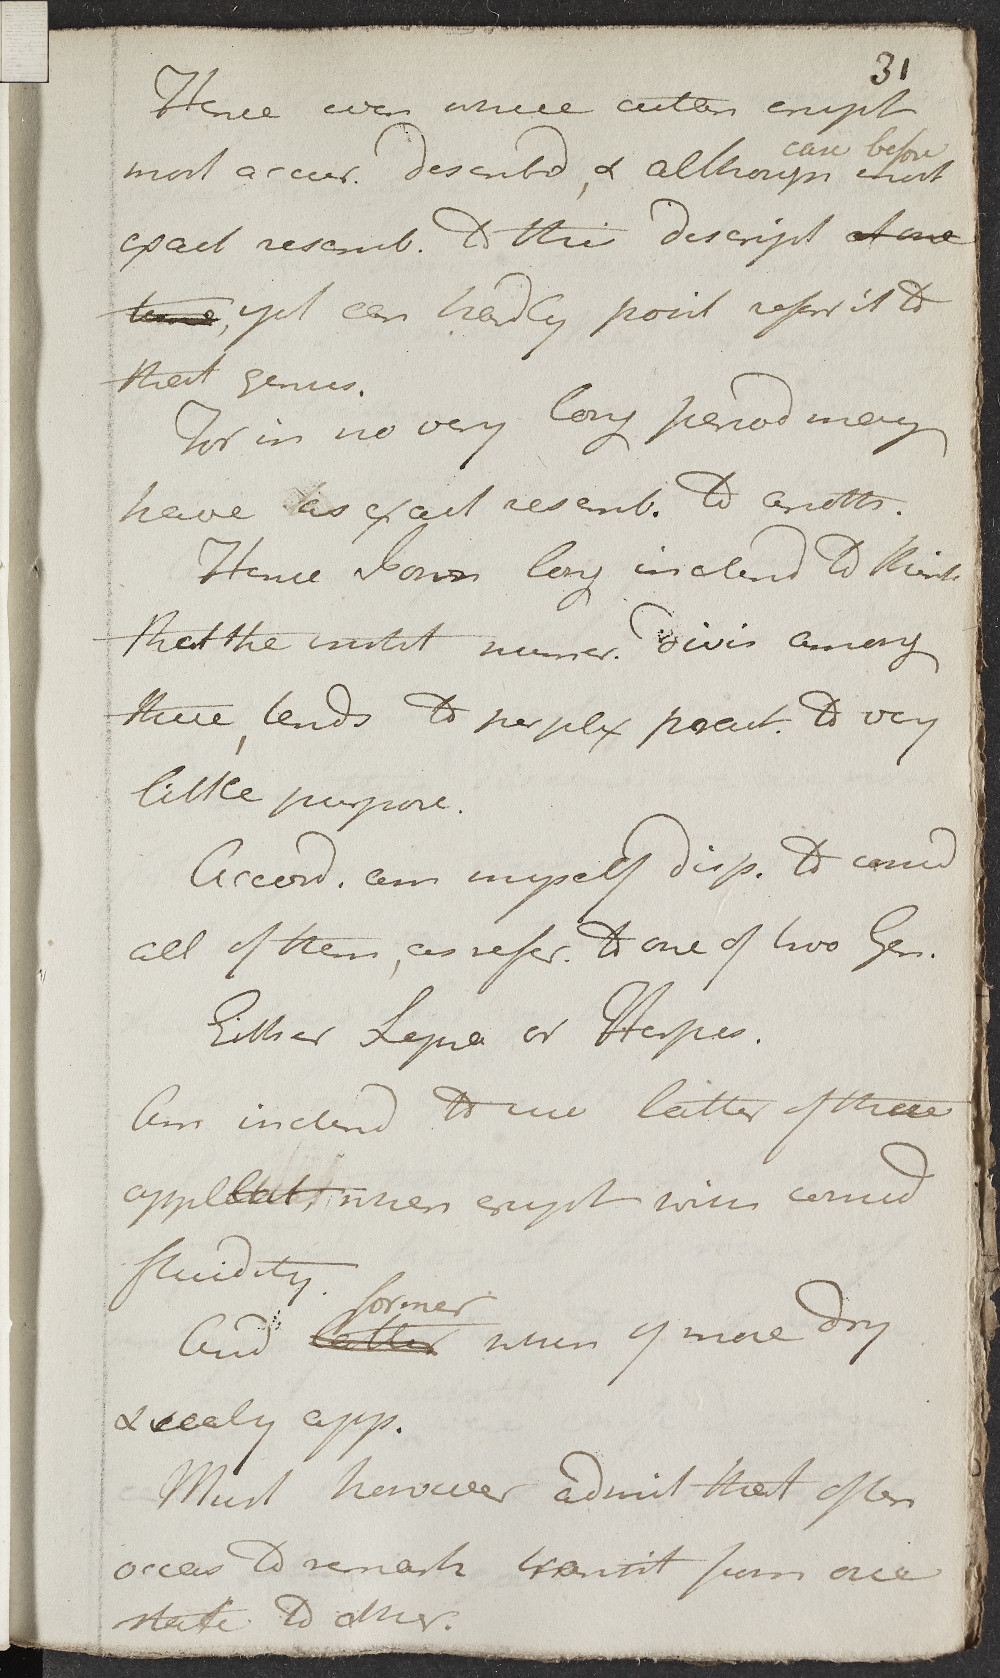 31
Hence even where cutan erupt
case before
most accur. describd, & although most
exact resemb. to this descript at one
time, yet can hardly point refer it to
that genus.
For in no very long period may
have as exact resemb. to anoth.
Hence I own long inclend to think
that the instit numer. divis among
these, tends to perplex pract. to very
little purpose.
Accord. am myself disp. to consid
all of them, as refer. to one of two Gen.
Either Lepra or Herpes.
Am inclend to use latter of these
appellat, when erupt with consid
fluidity.
former
And latter when of more dry
& scaly app.
Must however admit that often
occas to remark transit from one
state to other.